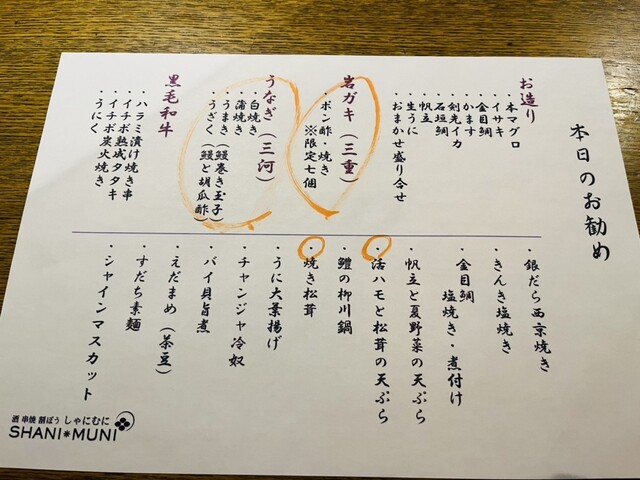 本日のお勧め
お造り
・本マグロ
・イサキ
・金目鯛
・かます
・剣先イカ
・石垣鯛
・帆立
・生うに
・おまかせ盛り合せ
岩ガキ(三重)
・ポン酢・焼き
※限定七個
うなぎ(三河)
・白焼き
・蒲焼き
・うまき(鰻巻き玉子)
・うざく(鰻と胡瓜酢)
黒毛和牛
・ハラミ漬け焼き串
・イチボ熟成タタキ
・イチボ炭火焼き
・うにく
・銀だら西京焼き
・きんき塩焼き
・金目鯛
塩焼き・煮付け
・帆立と夏野菜の天ぷら
・活ハモと松茸の天ぷら
・鱧の柳川鍋
・焼き松茸
・うに大葉揚げ
・チャンジャ冷奴
・バイ貝旨煮
・えだまめ(茶豆)
・すだち素麺
・シャインマスカット
酒 串焼 割ぽう しゃにむに
SHANI*MUNI